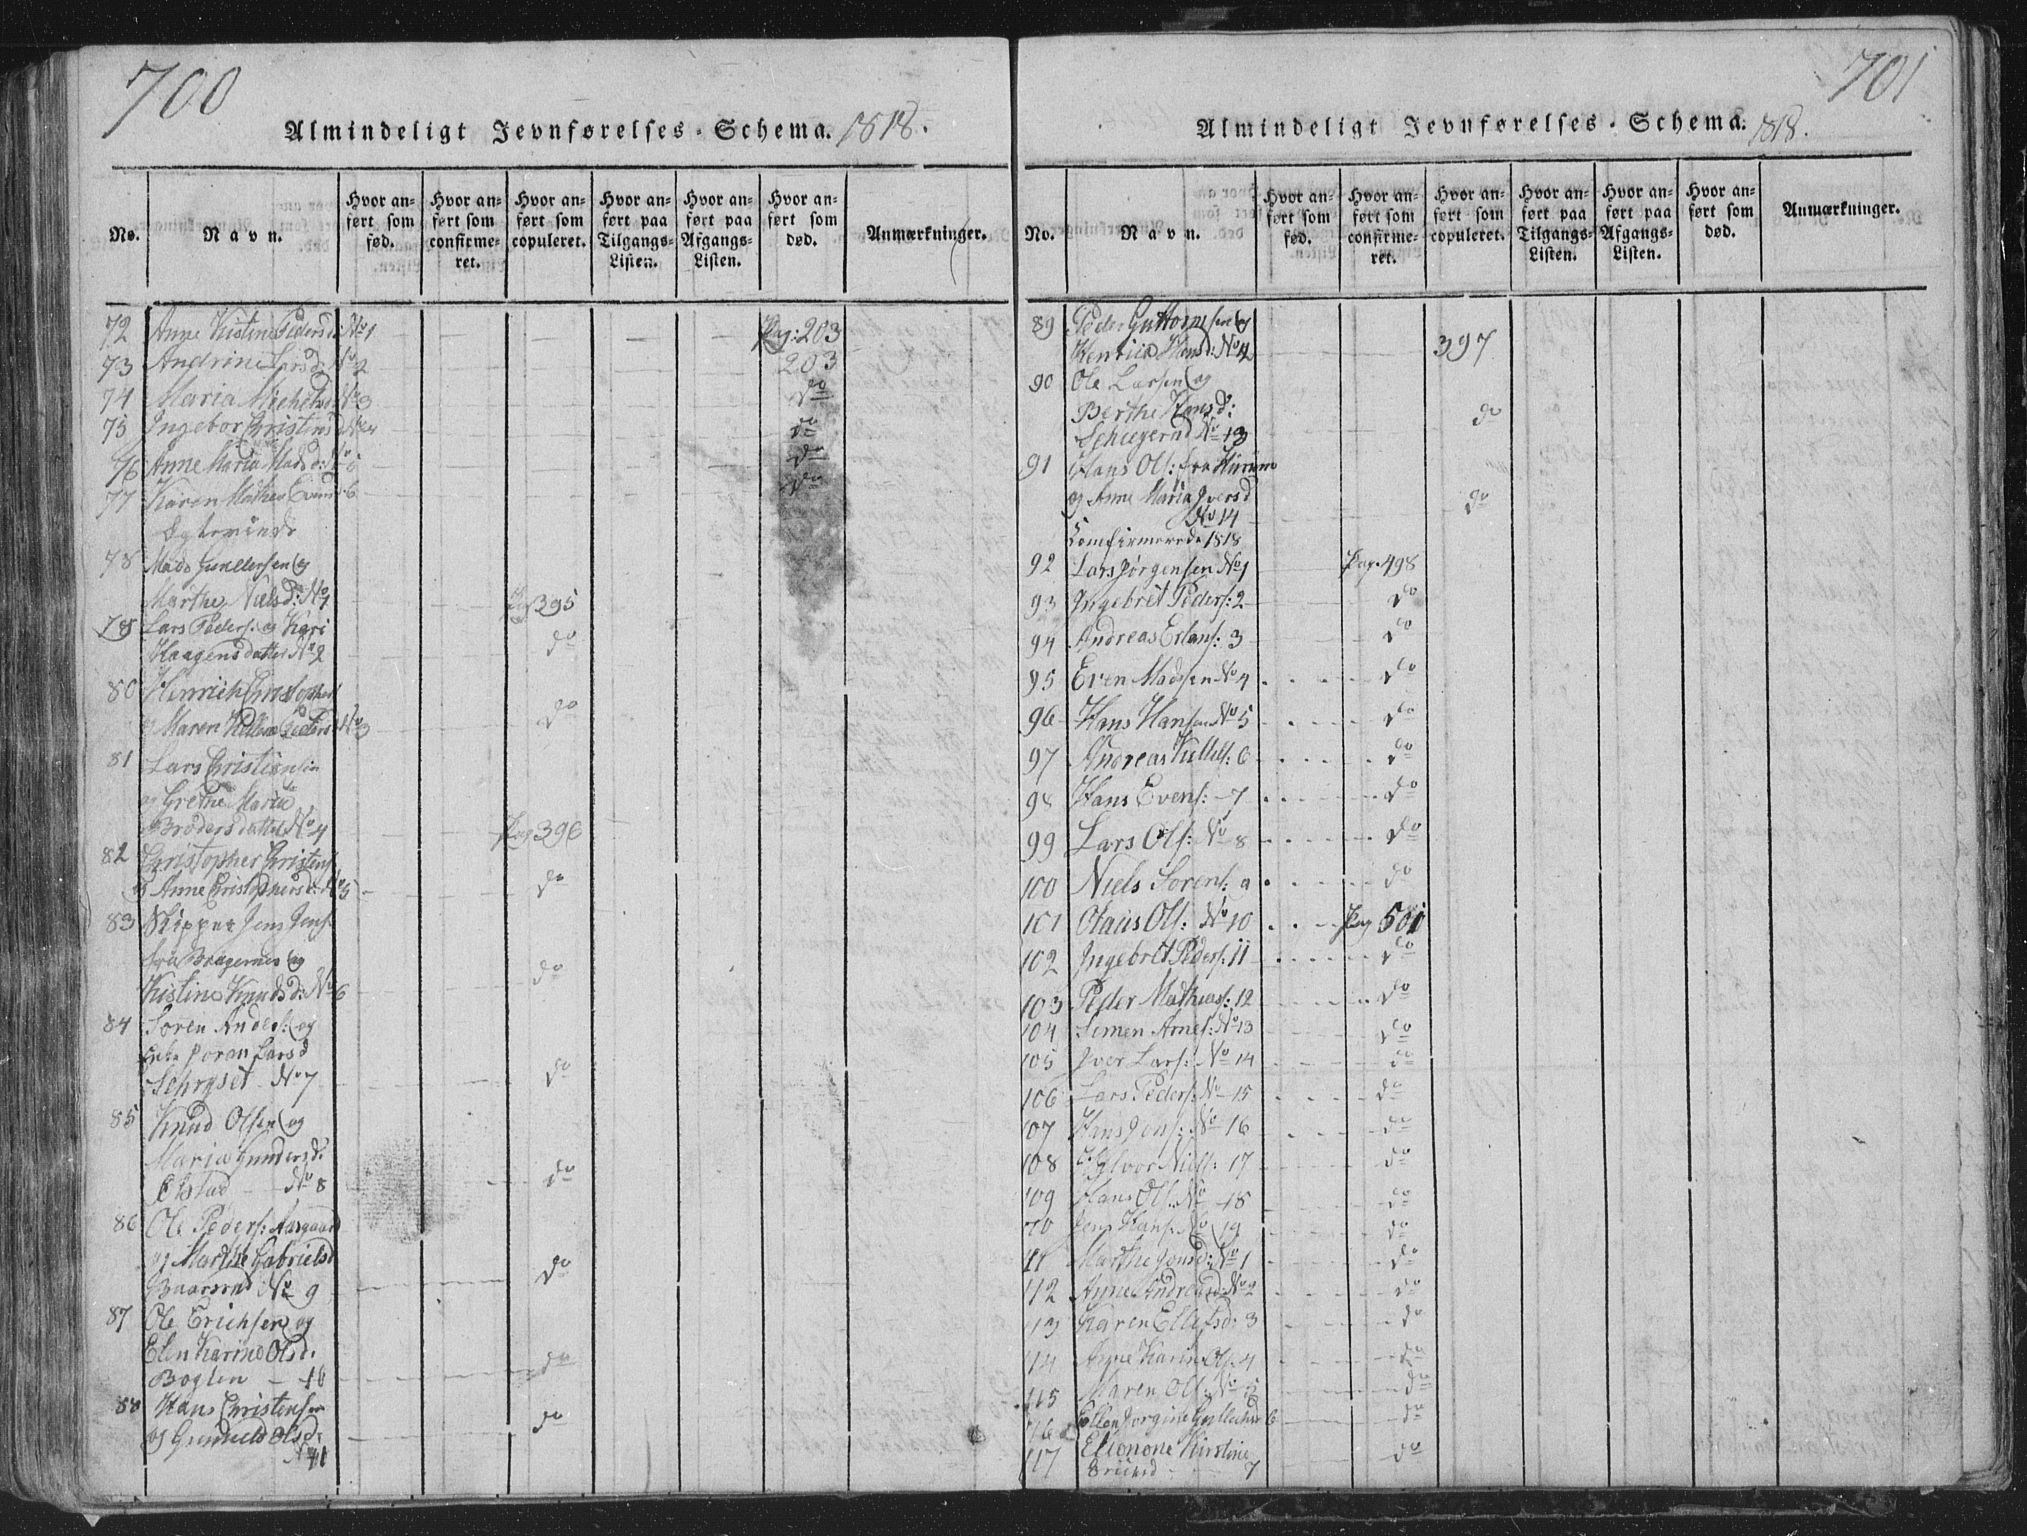 700
Almindeligt Jevnførelses-Schema. 1818.
No.
Navn.
Hvor an-
ført som
fød.
Hvor an-
ført som
confirme-
ret.
Hvor an-
ført som
copuleret.
Hvor an-
ført paa
Tilgangs-
Listen.
Hvor an-
ført paa
Afgangs-
Listen.
Hvor an-
ført som
død.
Anmærkninger.
72 Anne Kistine Pedersd No 1 Pag: 203
73 Andrine Larsd: No 2 203
74 Maria Michelsd No 3 do
75 Ingebor Christensd No 4 do
76 Anne Maria Madsd: No 5 do
77 Karen Mathea Evensd 6 do
Ægteviede
78 Mads Gundersen og
Marthe Nielsd: No 1 Pag 395
78 Lars Peders: og Kari
Haagensdatter No 2 do
80 Henrich Christophers
og Maren Peders No 3 do
81 Lars Christiansen
og Grethe Maria
Brodersdatter No 4 Pag 396
82 Christopher Christens
og Anne Christophersd: No 5 do
83 Skipper Jens Jens:
fra Bragernes og
Kistine Knudsd: No 6 do
84 Søren Anders: og
Enke Joran Larsd
No 7 do
85 Knud Olsen og
Maria Gundersd:
No 8 do
86 Ole Peders: Aasgaard
og Marthe Gabrielsd
Baarsrud No 9 do
87 Ole Erichsen og
Elen Karine Olsd:
10 do
88 Hans Christensen
og Olsd:
No 11 do
701
Almindeligt Jevnførelses-Schema. 1818.
No.
Navn.
Hvor an-
ført som
fød.
Hvor an-
ført som
confirme-
ret.
Hvor an-
ført som
copuleret.
Hvor an-
ført paa
Tilgangs-
Listen.
Hvor an-
ført paa
Afgangs-
Listen.
Hvor an-
ført som
død.
Anmærkninger.
89 Peder Guttormsen og
Hansd: No 12 397
90 Ole Larsen og
Berthe Hansd:
No 13 do
91 Hans Ols: fra Hurum
og Anne Maria Iversd
No 14 do
Comfirmerede 1818
92 Lars Jørgensen No 1 Pag. 498
93 Ingebret Peders: 2 do
94 Andreas Erlans: 3 do
95 Even Madsen No 4 do
96 Hans Hansen No 5 do
97 Andreas Kittils: 6 do
98 Hans Evens: 7 do
99 Lars Ols: No 8 do
100 Niels Sørens: 9 do
101 Olaus Ols: No 10 Pag 501
102 Ingebret Peders: 11 do
103 Peder Mathias: 12 do
104 Simen Arnes: No 13 do
105 Iver Lars: No 14 do
106 Lars Peders: No 15 do
107 Hans Jons: No 16 do
108 Niels: 17 do
109 Hans Ols: No 18 do
70 Jens Hans: No 19 do
11 Marthe Jonsd: No 1 do
112 Anne Andreasd: No 2 do
113 Karen Ellefsd: 3 do
114 Anne Karine Ols: 4 do
115 Maren Ols: No 5 do
116 Ellen Jorgine 6 do
117 Elionone Kirstine
7 do